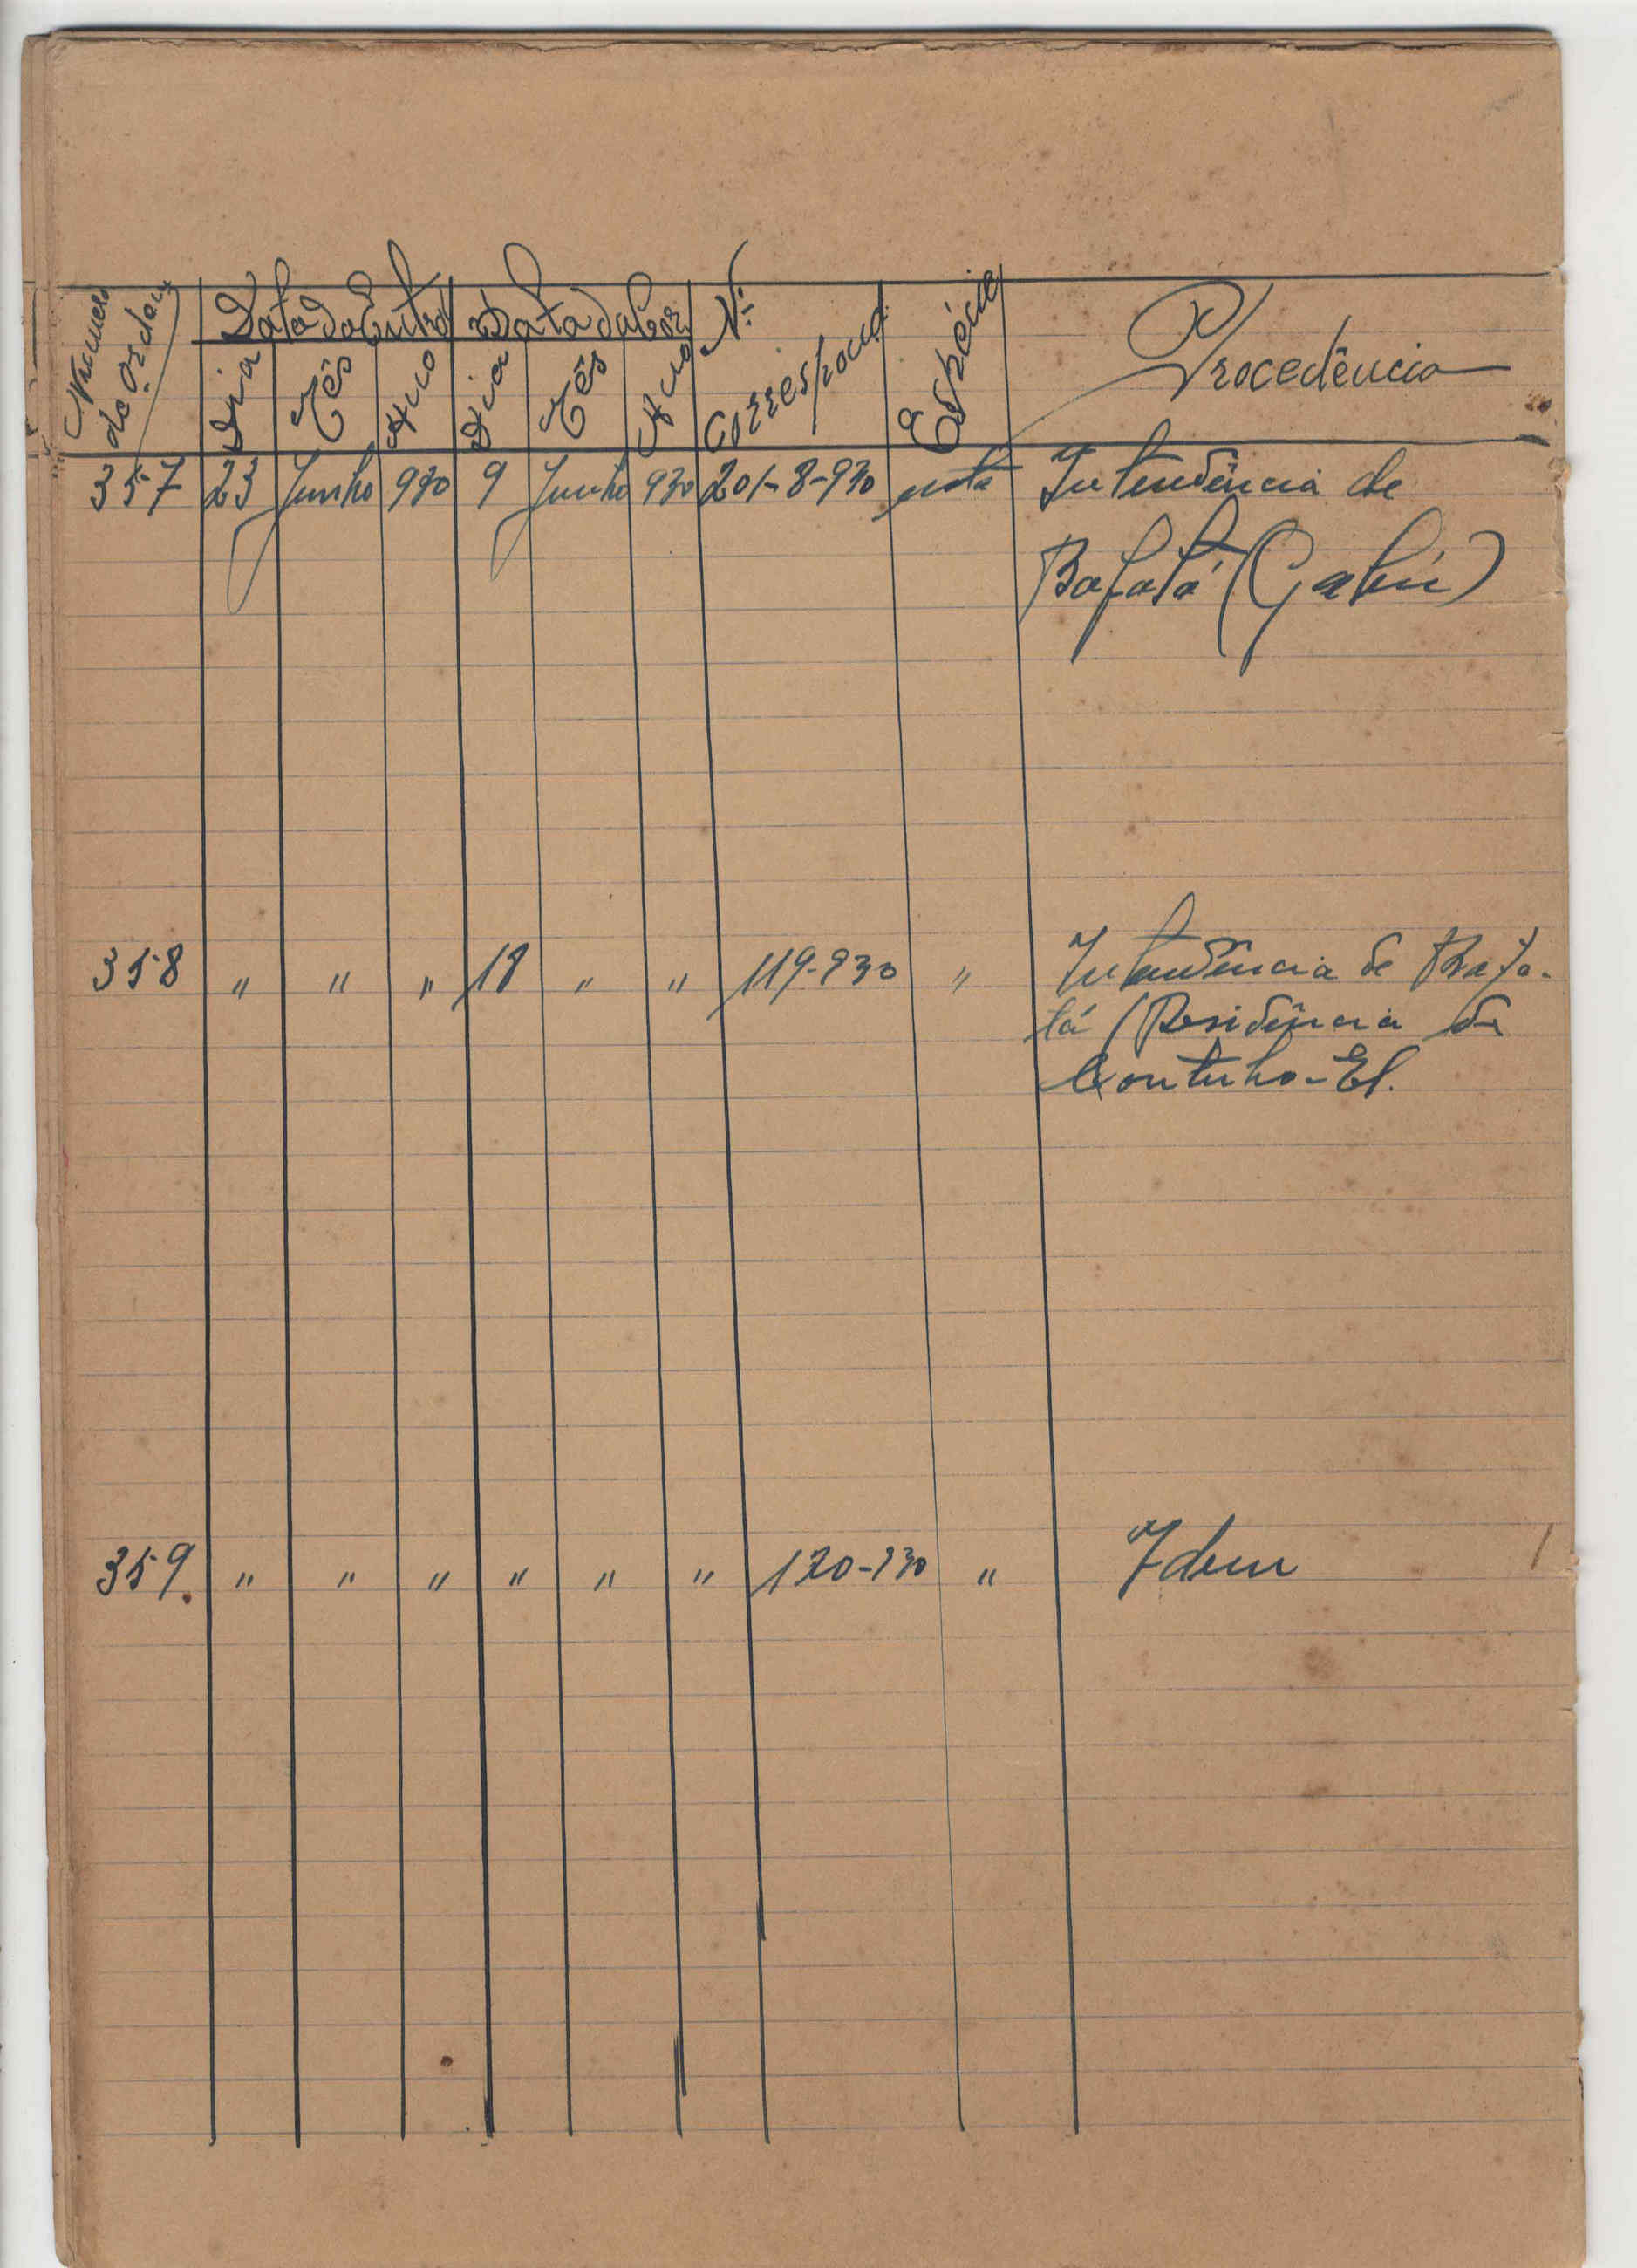 Número de Ordem Data da Entrª Data da Cor. Nº Correspond. Espécie Procedência
Dia Mês Ano Dia Mês Ano
357 23 Junho 930 9 Junho 930 201-8-930 nota Intendência de
Bafatá (Gabú)
358 " " " 18 " " 119-930 " Intendência de Bafa-
tá (Residência de
Contuho-El.
359 " " " " " " 120-930 " Idem